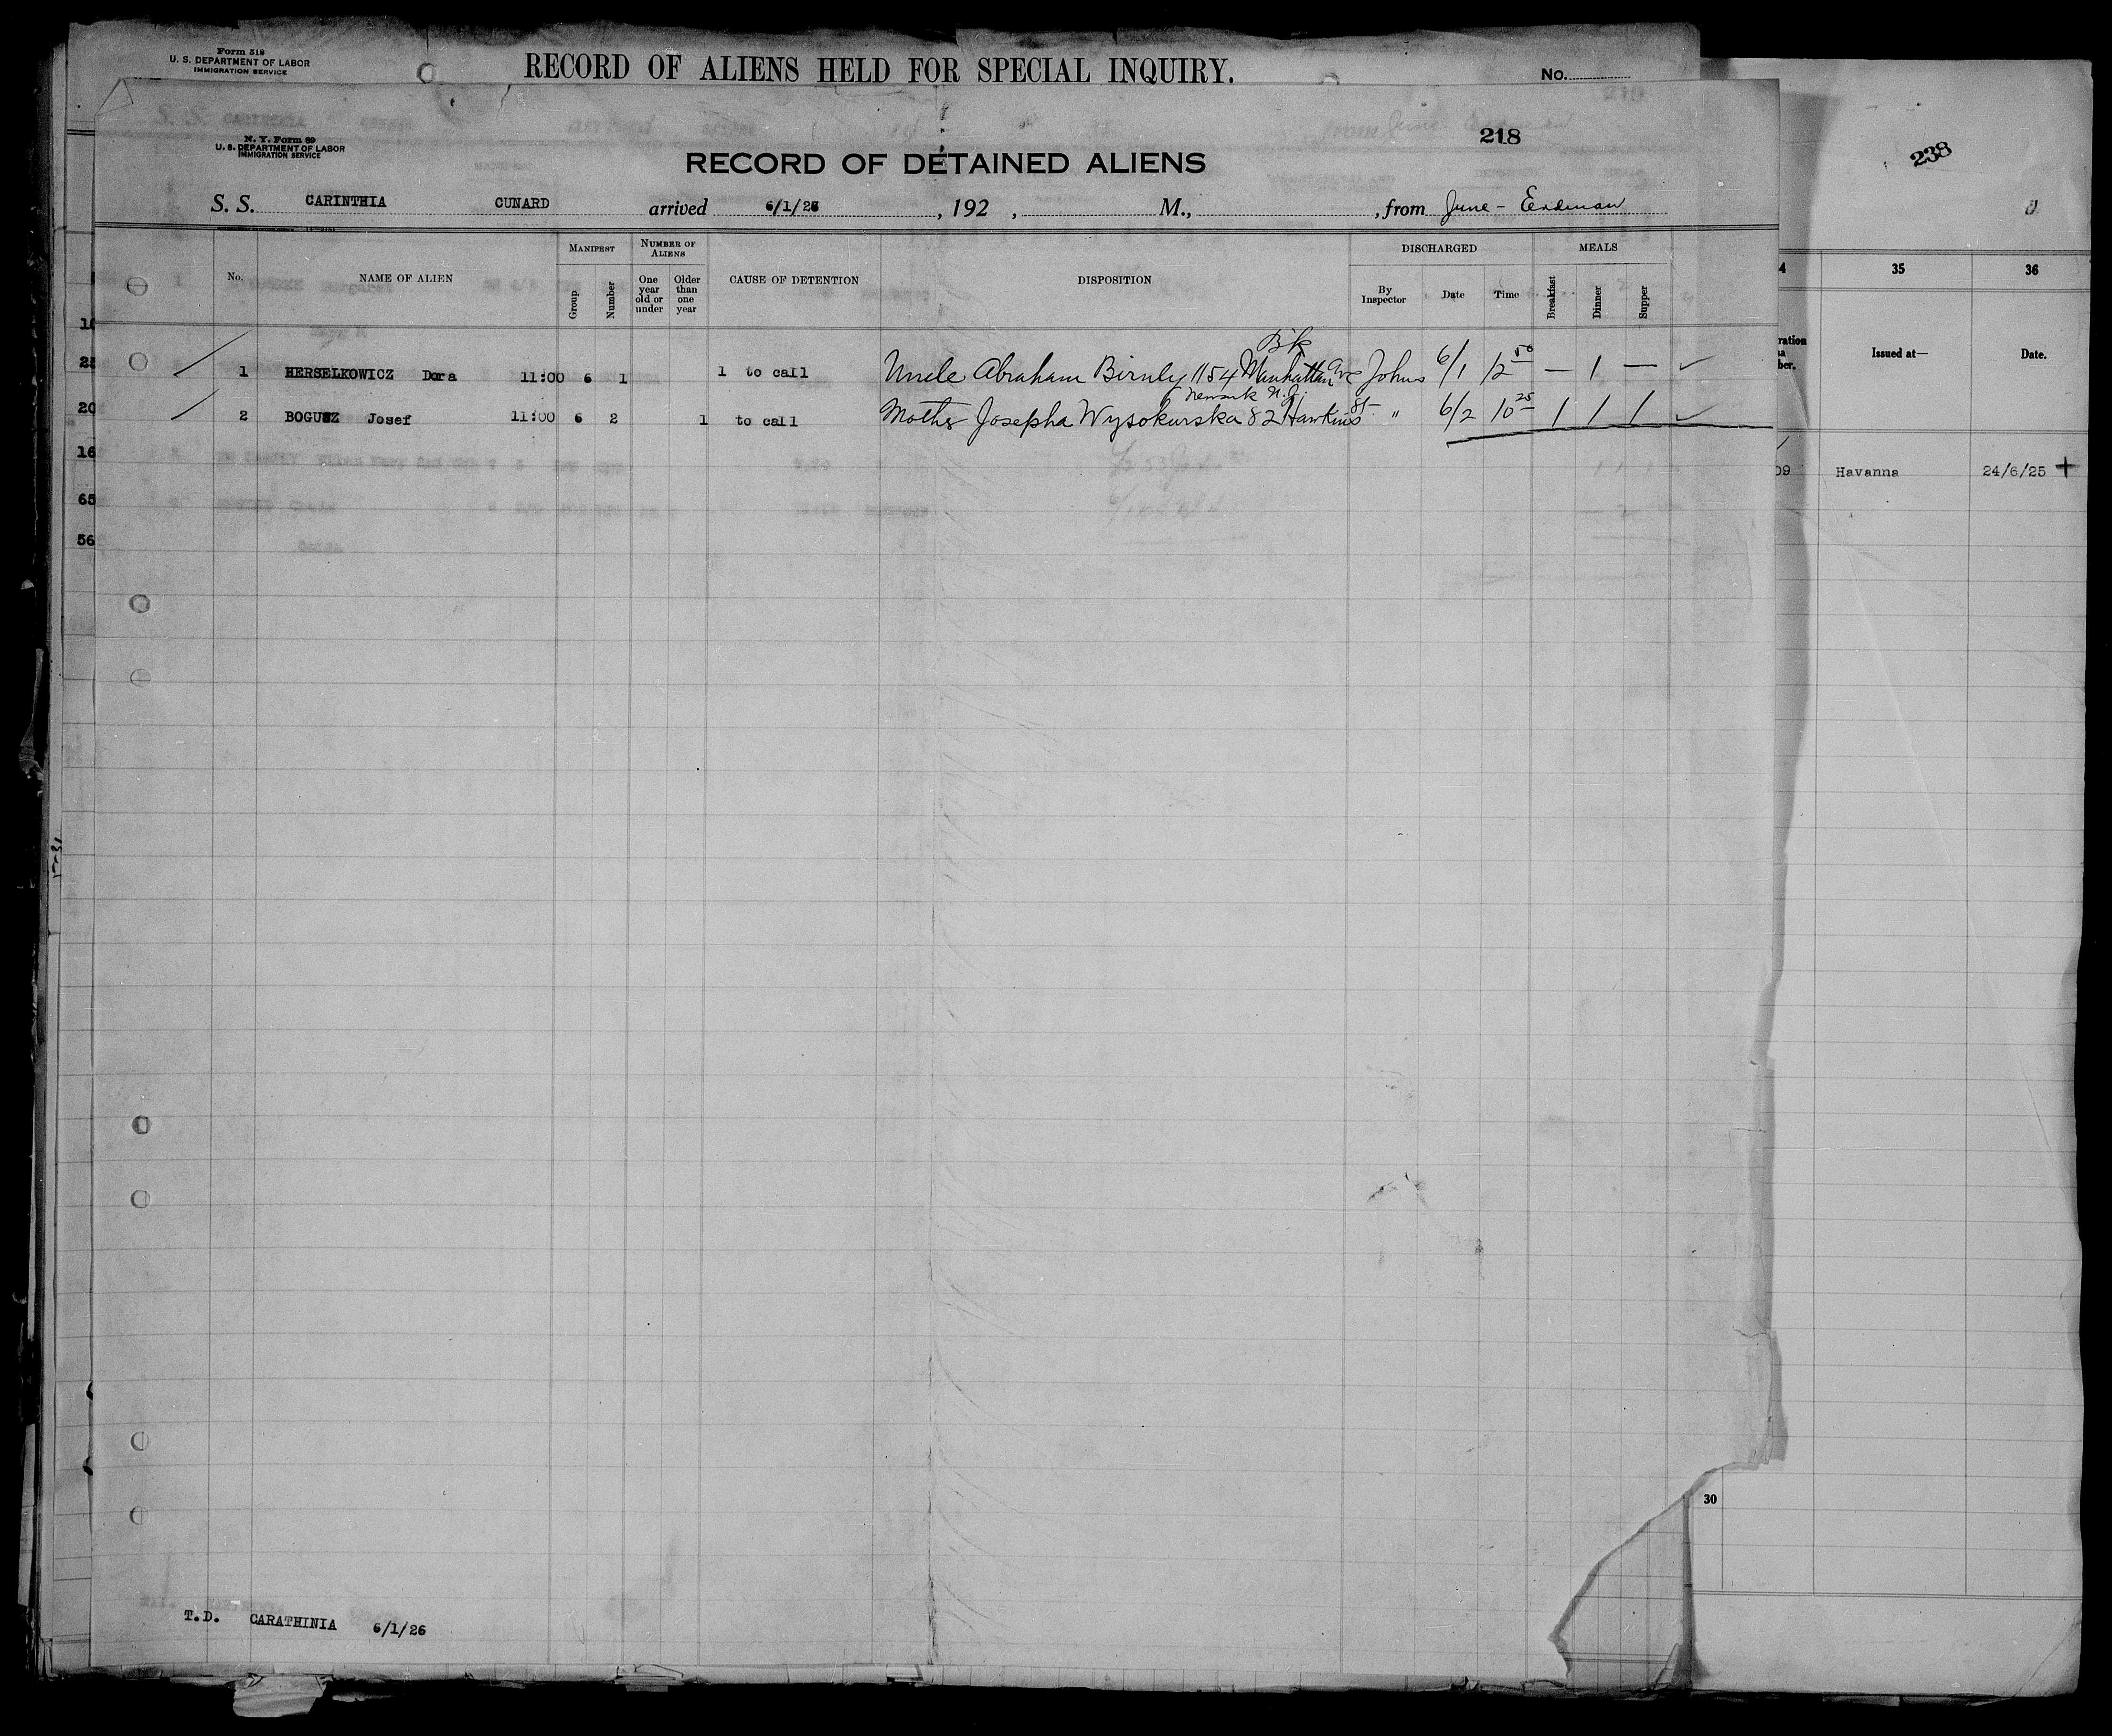 Form 519
U. S. DEPARTMENT OF LABOR
IMMIGRATION SERVICE
RECORD OF ALIENS HELD FOR SPECIAL INQUIRY.
No.
N. Y. Form 89
U. S. DEPARTMENT OF LABOR
IMMIGRATION SERVICE
218
RECORD OF DETAINED ALIENS
238
S. S. CARINTHIA CUNARD arrived 6/1/26, 192 , M., , from June -
No. NAME OF ALIEN MANIFEST Group Number NUMBER OF ALIENS One year old or under Older than one year CAUSE OF DETENTION DISPOSITION DISCHARGED By Inspector Date Time MEALS Breakfast Dinner Supper
35 36
Issued at— Date.
B'k
1 HERSELKOWICZ Dora 11:00 6 1 1 to call Uncle Abraham Birnly 1154 Manhattan Ave Johns 6/1 12 50 — 1 — ✓
Newark N.J.
2 BOGUSZ Josef 11:00 6 2 1 to call Mother Josepha Wysokurska 82 Hawkins St " 6/2 10 25 1 1 1 ✓
20
16
65
56
09 Havanna 24/6/25 +
30
T.D. CARATHINIA 6/1/26